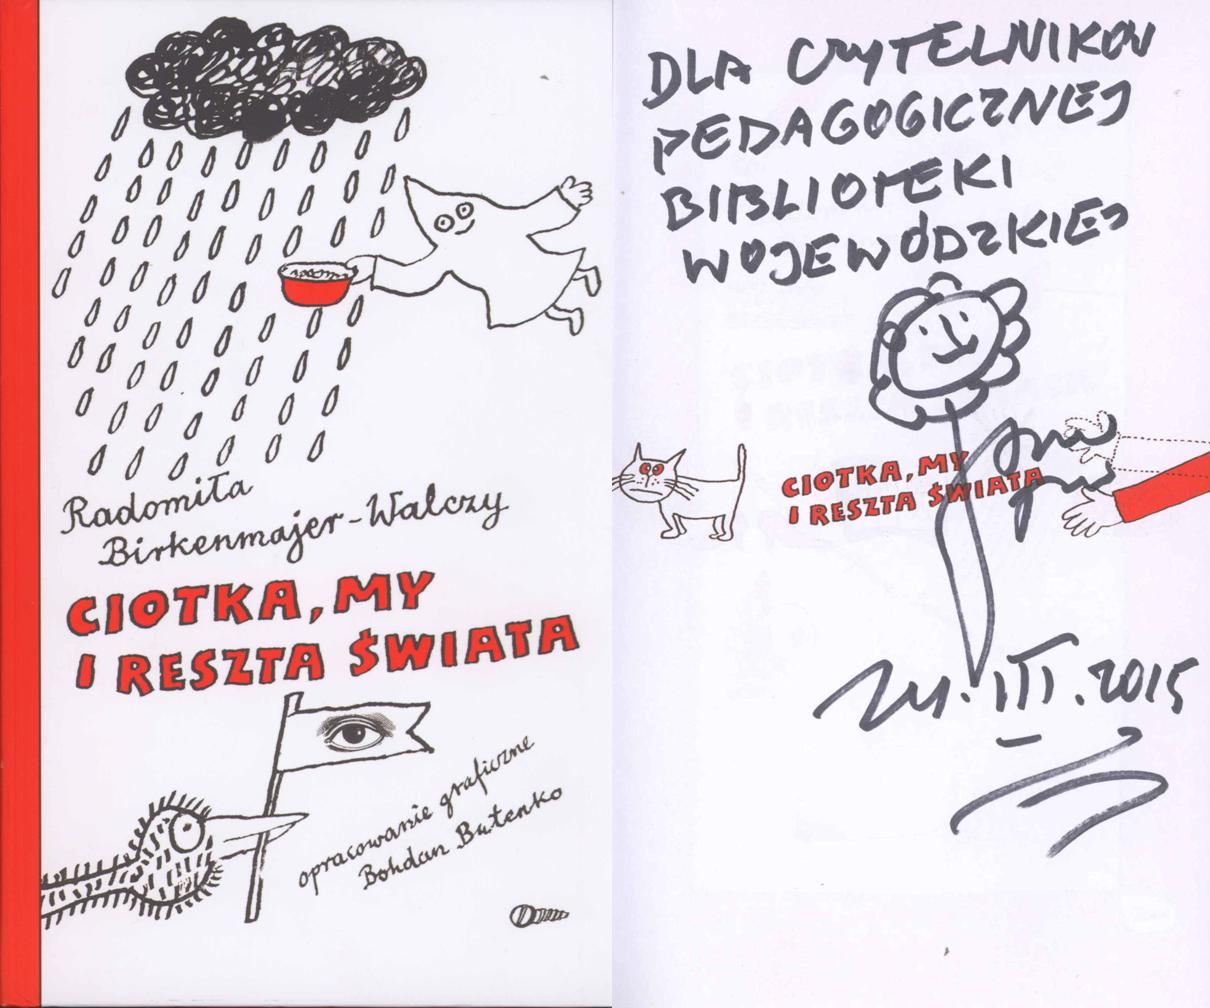 Radomiła
Birkenmajer-Walczy
CIOTKA, MY
I RESZTA ŚWIATA
opracowanie graficzne
Bohdan Butenko
DLA CZYTELNIKÓW
PEDAGOGICZNEJ
BIBLIOTEKI
WOJEWÓDZKIEJ
CIOTKA, MY
I RESZTA ŚWIATA
24.III.2015